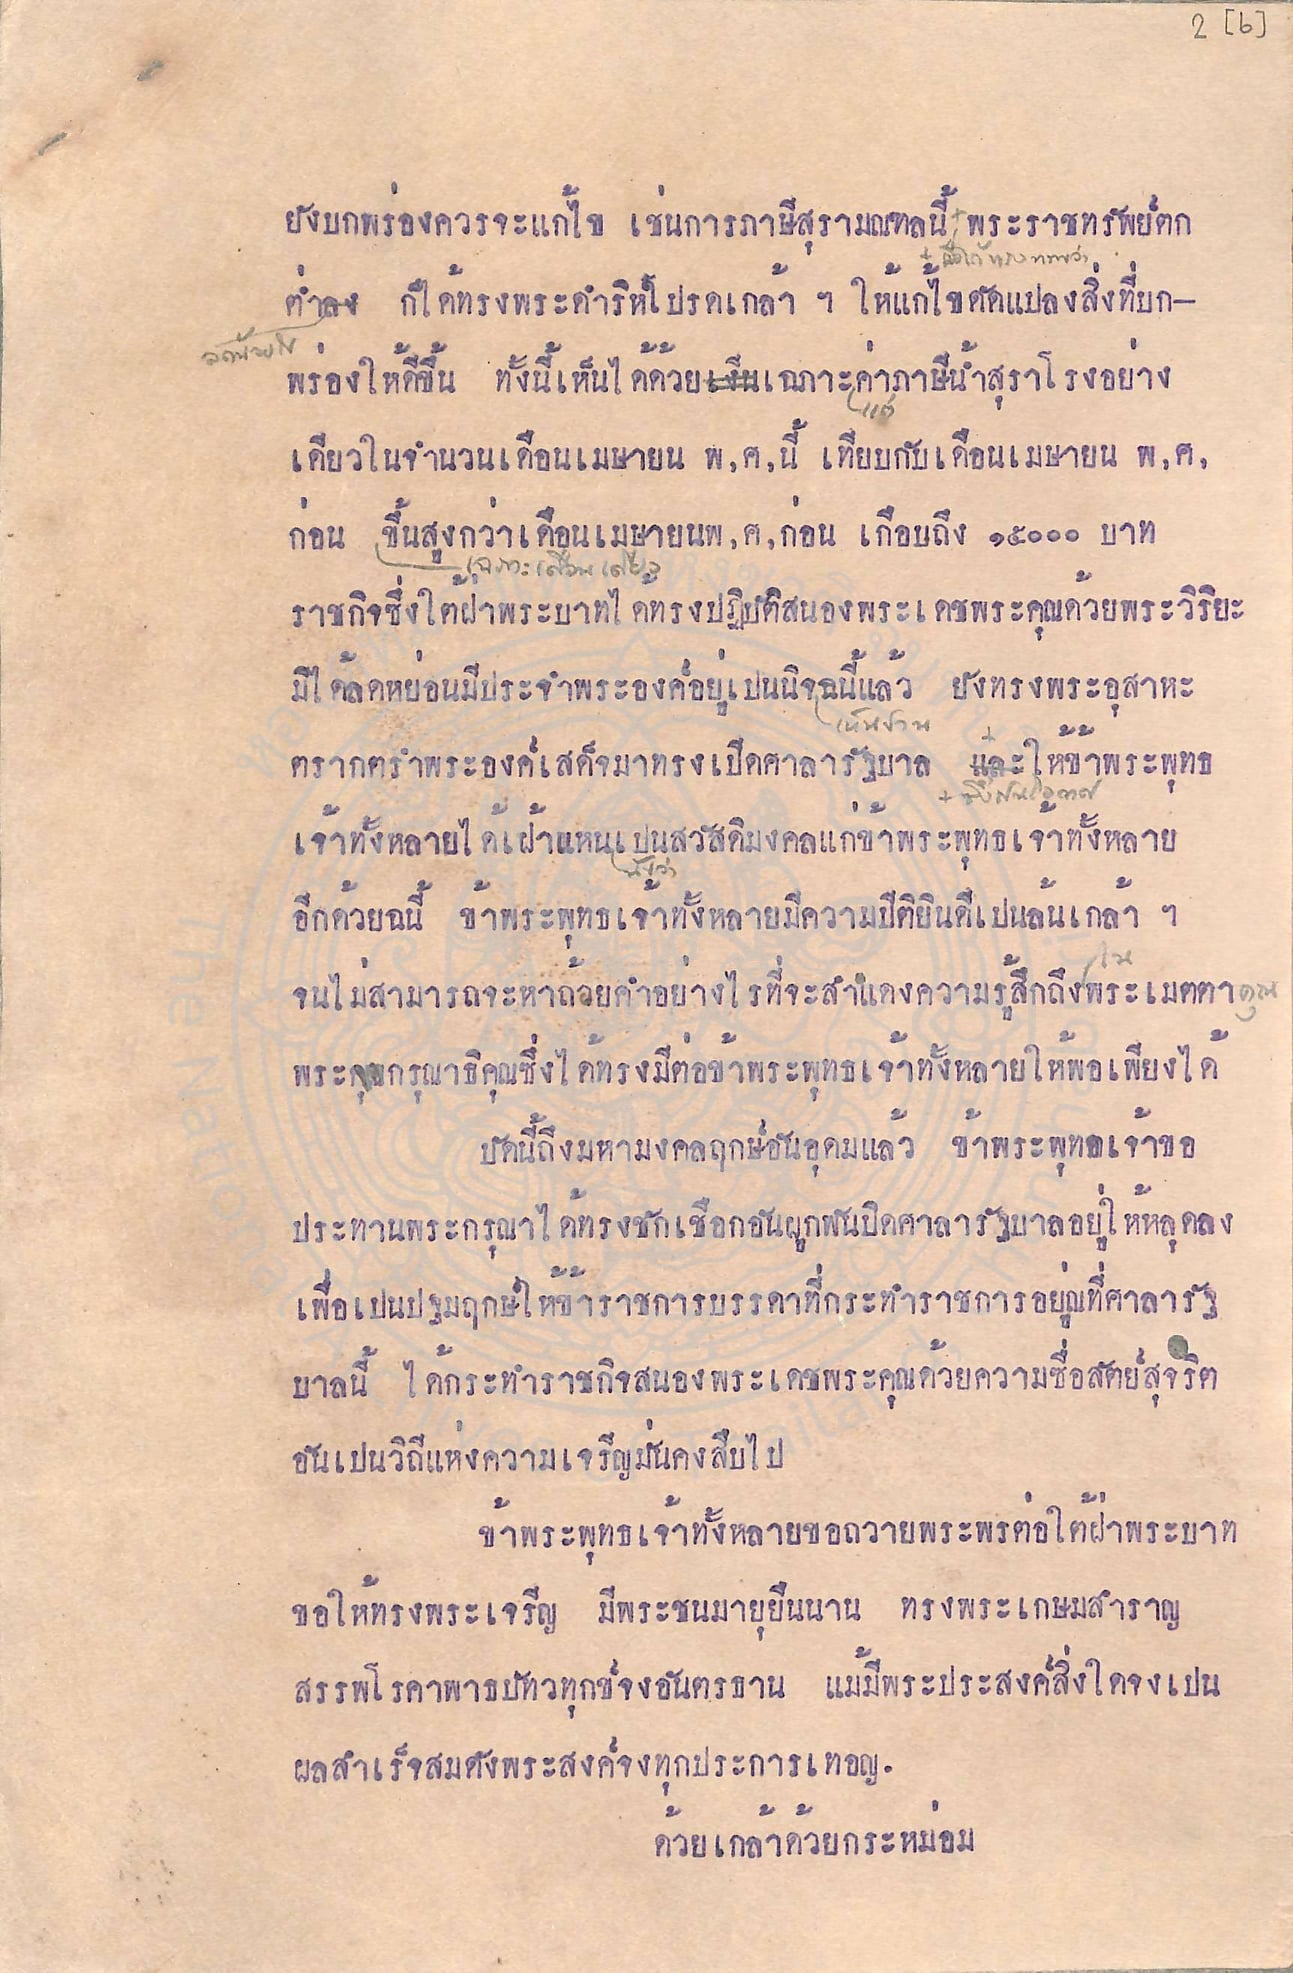 2 [๖]
ยังบกพร่องควรจะแก้ไข เช่นการภาษีสุรามณฑลนี้ พระราชทรัพย์ตก
+ เมื่อได้ทรงทราบว่า
ต่ำลง ก็ได้ทรงพระดำริห์โปรดเกล้า ฯ ให้แก้ไขดัดแปลงสิ่งที่บก-
ลดน้อยไป
พร่องให้ดีขึ้น ทั้งนี้เห็นได้ด้วยเงินเฉภาะค่าภาษีน้ำสุราโรงอย่าง
แต่
เดียวในจำนวนเดือนเมษายน พ,ศ,นี้ เทียบกับเดือนเมษายน พ,ศ,
ก่อน ขึ้นสูงกว่าเดือนเมษายนพ,ศ,ก่อน เกือบถึง ๑๕๐๐๐ บาท
เฉภาะเดือนเดียว
ราชกิจซึ่งใต้ฝ่าพระบาทได้ทรงปฏิบัติสนองพระเดชพระคุณด้วยพระวิริยะ
มิได้ลดหย่อนมีประจำพระองค์อยู่เปนนิจฉนี้แล้ว ยังทรงพระอุสาหะ
ตรากตรำพระองค์เสด็จมาทรงเปิดศาลารัฐบาล และให้ข้าพระพุทธ
เจ้าทั้งหลายได้เฝ้าแหนเปนสวัสดิมงคลแก่ข้าพระพุทธเจ้าทั้งหลาย
นับว่า
อีกด้วยฉนี้ ข้าพระพุทธเจ้าทั้งหลายมีความปีติยินดีเปนล้นเกล้า ฯ
ใน
จนไม่สามารถจะหาถ้อยคำอย่างไรที่จะสำแดงความรู้สึกถึงพระเมตตาคุณ
พระกรุณาธิคุณซึ่งได้ทรงมีต่อข้าพระพุทธเจ้าทั้งหลายให้พอเพียงได้
บัดนี้ถึงมหามงคลฤกษ์อันอุดมแล้ว ข้าพระพุทธเจ้าขอ
ประทานพระกรุณาได้ทรงชักเชือกอันผูกพันปิดศาลารัฐบาลอยู่ให้หลุดลง
เพื่อเปนปฐมฤกษ์ให้ข้าราชการบรรดาที่กระทำราชการอยู่ณที่ศาลารัฐ
บาลนี้ ได้กระทำราชกิจสนองพระเดชพระคุณด้วยความซื่อสัตย์สุจริต
อันเปนวิถีแห่งความเจริญมั่นคงสืบไป
ข้าพระพุทธเจ้าทั้งหลายขอถวายพระพรต่อใต้ฝ่าพระบาท
ขอให้ทรงพระเจริญ มีพระชนมายุยืนนาน ทรงพระเกษมสำราญ
สรรพโรคาพาธปัทวทุกข์จงอันตรธาน แม้มีพระประสงค์สิ่งใดจงเปน
ผลสำเร็จสมดังพระสงค์จงทุกประการเทอญ.
ด้วยเกล้าด้วยกระหม่อม